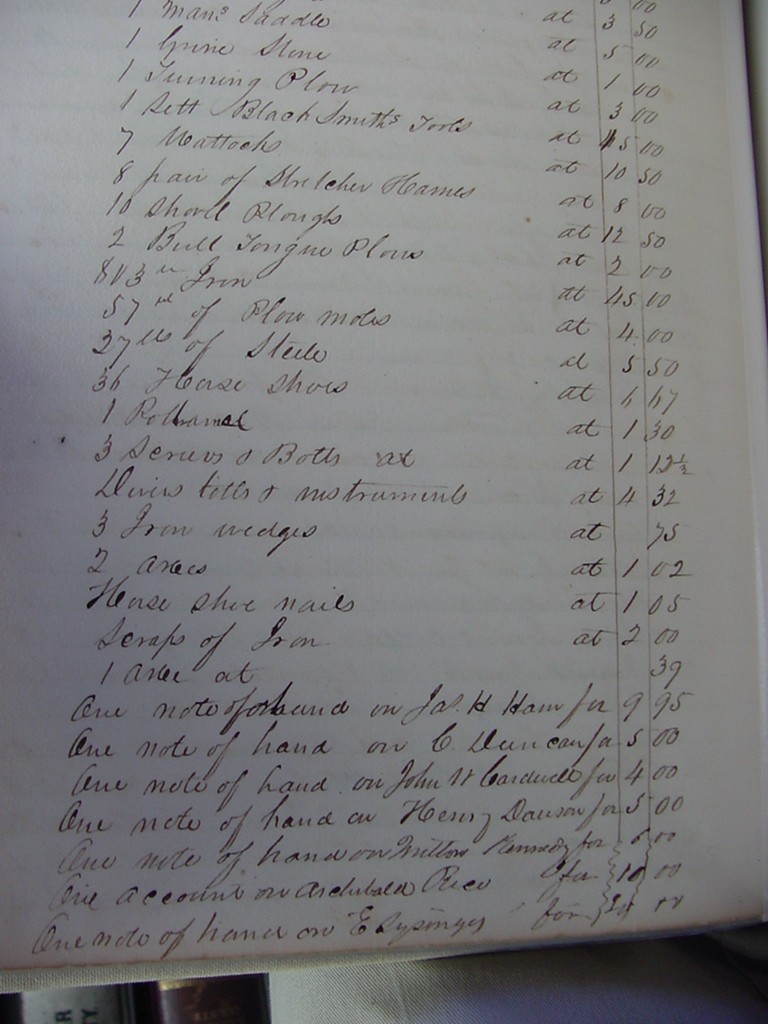 1 mans Saddle at 3 50
1 Grine Stone at 5 00
1 Turning Plow at 1 00
1 Sett Black Smiths Tools at 3 00
7 Mattocks at 45 00
8 pair of Stretcher Hames at 10 50
10 Shovel Ploughs at 8 00
2 Bull Tongue Plows at 12 50
803 Iron at 2 00
57 of Plow moles at 45 00
27 lbs of Steele at 4 00
36 Horse Shoes at 5 50
1 at 6 67
3 Screws & Bolts at at 1 30
Divers bolts & instruments at 1 12½
3 Iron wedges at 4 32
2 axes at 75
Horse shoe nails at 1 02
Scraps of Iron at 1 05
1 axe at 2 00
39
One note of hand on Jas. H Ham for 9 95
One note of hand on C. Duncan for 5 00
One note of hand on John W Cardwell for 4 00
One note of hand on Henry Dawson for 5 00
One note of hand on Milton Kennedy for 6 00
One account on Archibald Rice for 10 00
One note of hand on E Sysinger for